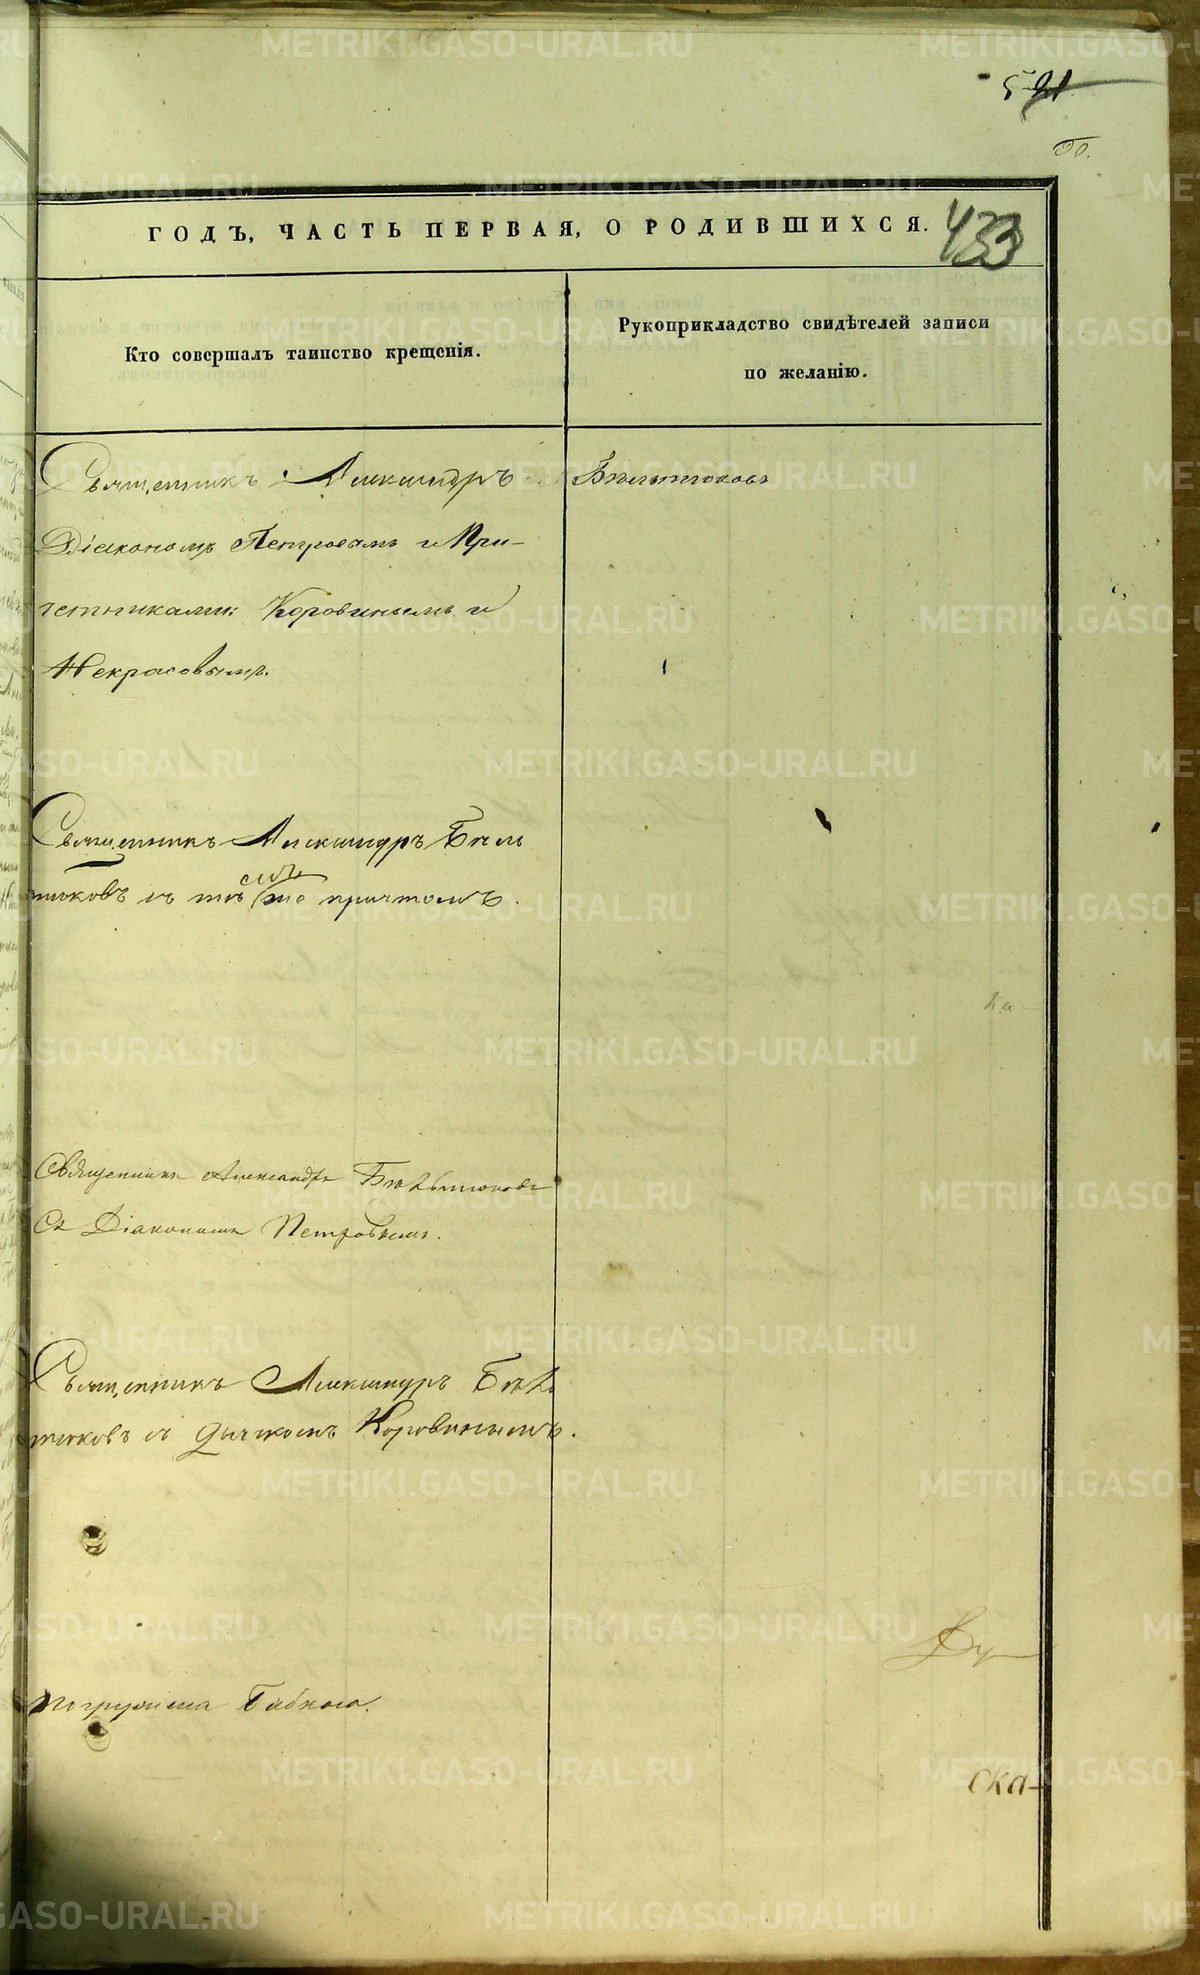 521
50.
ГОДЪ, ЧАСТЬ ПЕРВАЯ, О РОДИВШИХСЯ.
433
Кто совершалъ таинство крещенія.
Рукоприкладство свидѣтелей записи
по желанію.
Священникъ Александръ Бѣльтюковъ
Діакономъ Петровымъ и При-
четниками: Коровинымъ и
Некрасовымъ.
Священникъ Александръ Бѣль
тюковъ съ тѣмъ же причтомъ.
Священникъ Александръ Бѣльтюковъ
Съ Діакономъ Петровымъ.
Священникъ Александръ Бѣль
тюковъ съ дьячкомъ Коровинымъ.
погружена бабкою.
ска-
METRIKI.GASO-URAL.RU